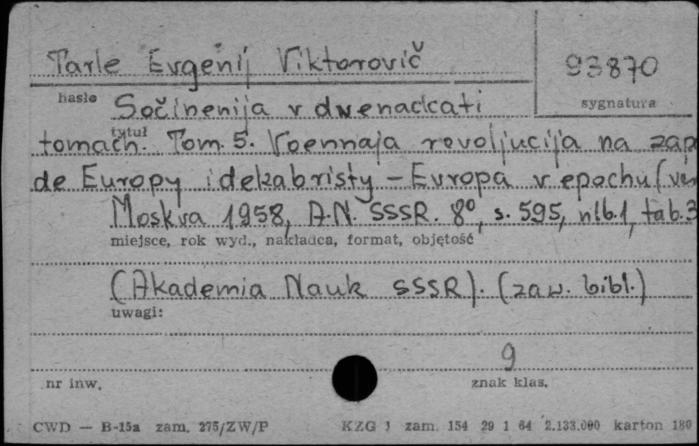 Tarle Evgenij Viktorovič
93870
hasło
sygnatura
Sočinenija v dwenadcati
tytuł
tomach. Tom. 5. Voennaja revoljucija na zap
de Europy i dekabristy - Evropa v epochu (ven
Moskva 1958, A.N. SSSR. 8º, s. 595, nlb.1, tab.3
miejsce, rok wyd., nakładca, format, objętość
(Akademia Nauk SSSR). (zaw. bibl.)
uwagi:
9
nr inw.
znak klas.
CWD — B-15a zam. 275/ZW/P KZG 1 zam. 154 29 1 64 2.133.000 karton 180